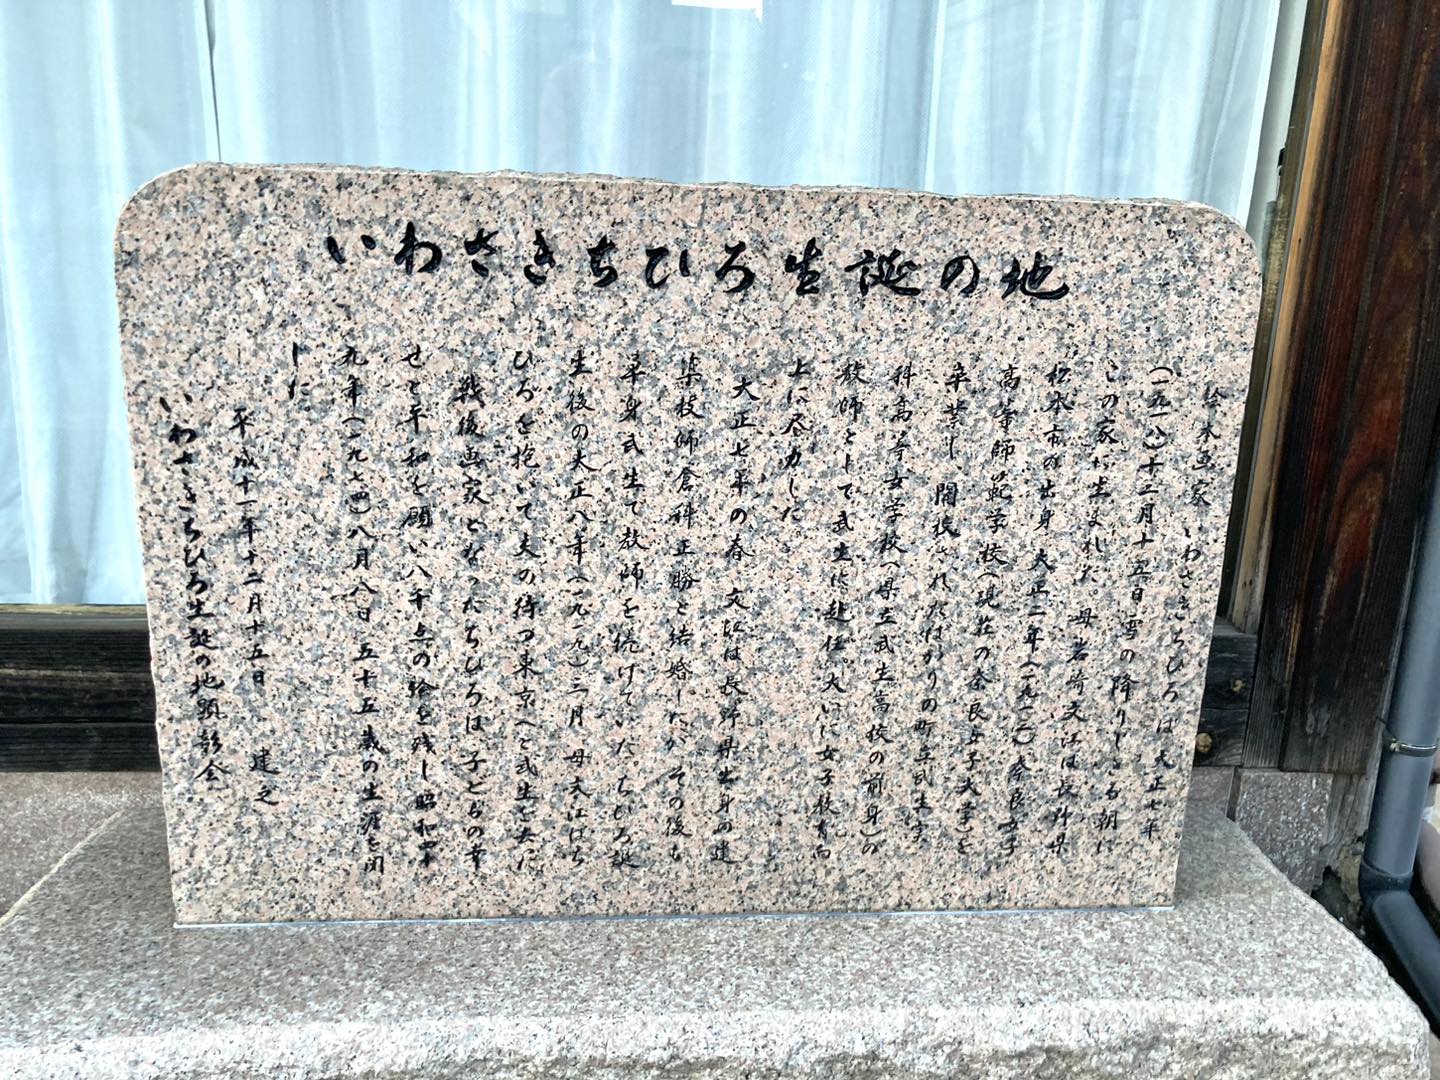 いわさきちひろ生誕の地
絵本画家 いわさきちひろは 大正七年
(一九一八)十二月十五日 雪の降りしきる朝に
この家に生まれた。母岩崎文江は長野県
松本市の出身 大正二年(一九一三)奈良女子
高等師範学校(現在の奈良女子大学)を
卒業し、開校されたばかりの町立武生実
科高等女学校(県立武生高校の前身)の
教師として武生に赴任。大いに女子教育向
上に尽力した
大正七年の春 文江は長野県出身の建
築技師倉科正勝と結婚したが その後も
単身武生で教師を続けていた。ちひろ誕
生後の大正八年(一九一九)三月 母文江はち
ひろを抱いて夫の待つ東京へと武生を去た
戦後画家となったちひろは 子どもの幸
せと平和を願い八千点の絵を残し昭和四十
九年(一九七四)八月八日 五十五歳の生涯を閉
じた。
平成十一年十二月十五日 建之
いわさきちひろ生誕の地顕彰会